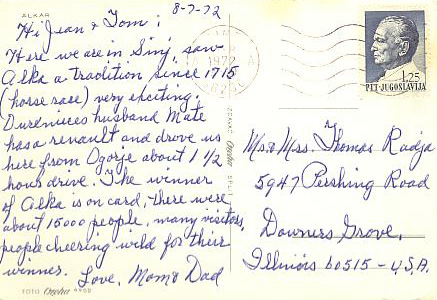 ALKAR
8-7-72
Hi Jean & Tom;
Here we are in Sinj, saw
Alka a tradition since 1715
(horse race) very exciting,
husband Mate
has a renault and drove us
here from Ogorje about 1 1/2
hours drive. The winner
of Alka is on card, there were
about 15000 people, many visitors,
people cheering wild for their
winner. Love, Mom & Dad
FOTO 
1972
1,25
PTT-JUGOSLAVIJA
Mr. & Mrs. Thomas Radja
5947 Pershing Road
Downers Grove,
Illinois 60515 - U.S.A.
SPLIT